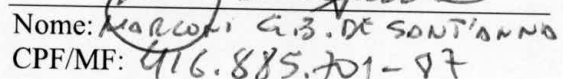 Nome: MARCONI G.B. DE SANT'ANNA
CPF/MF: 416.885.701-87